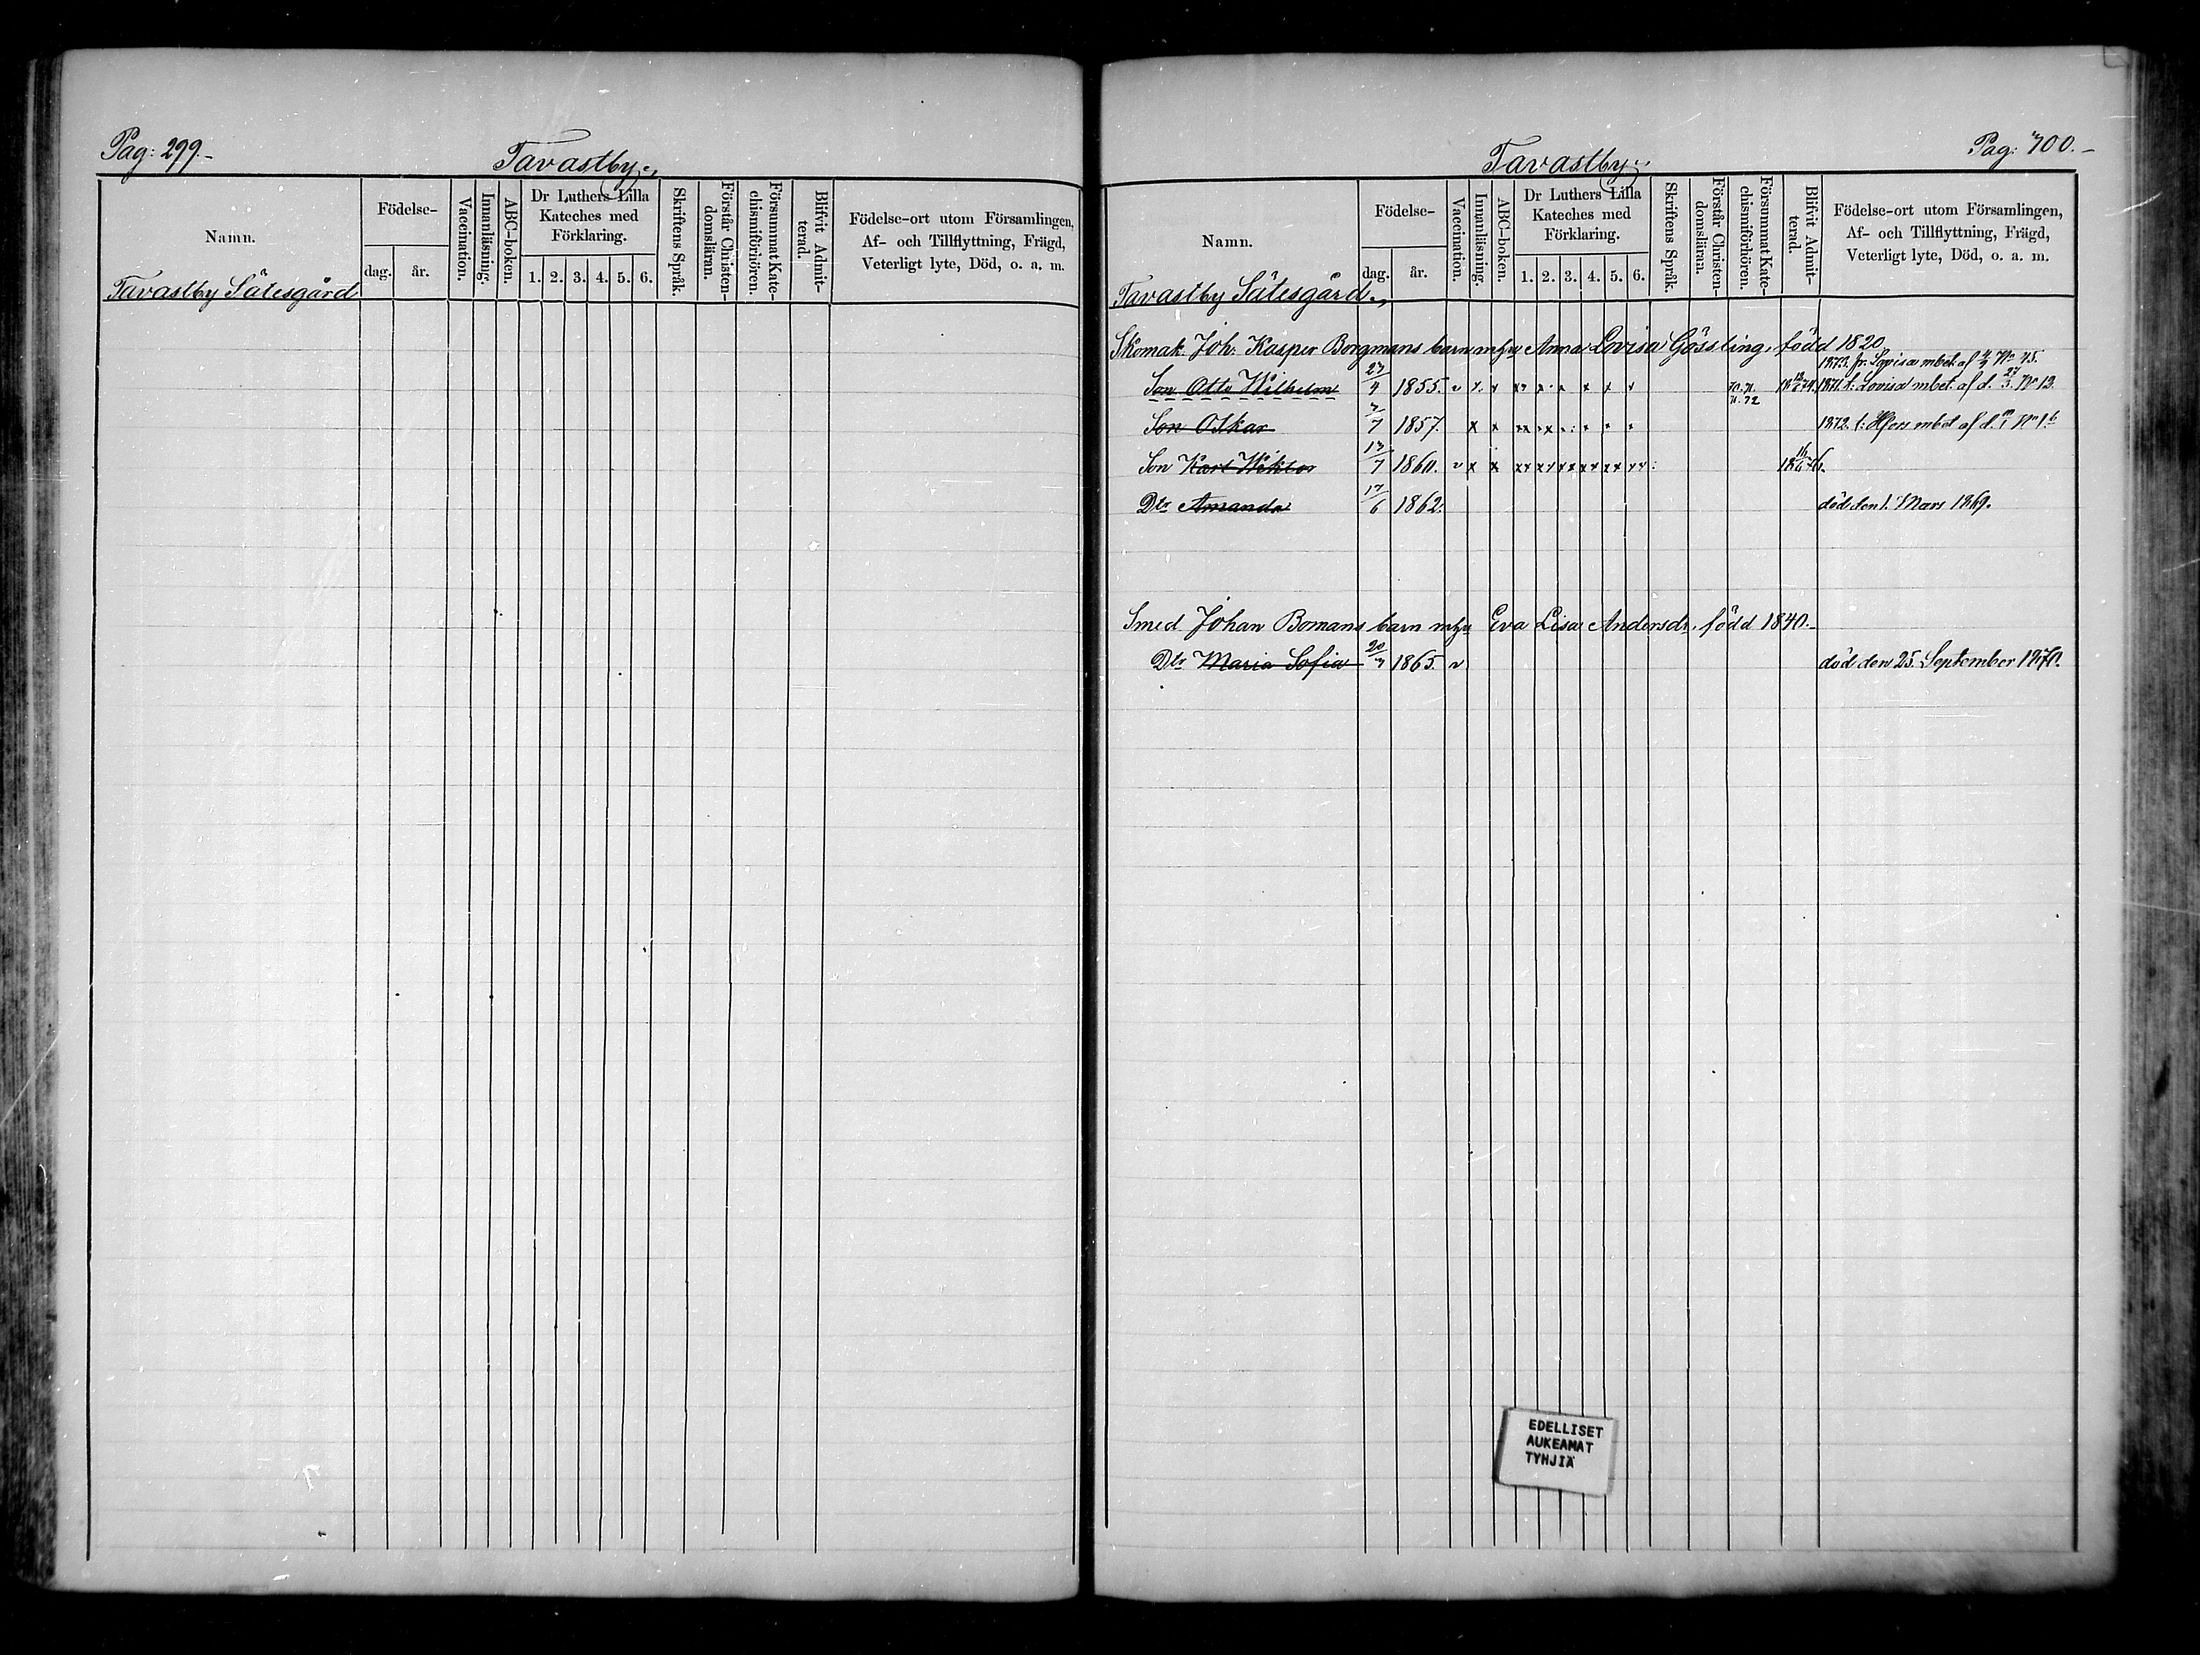 Pag: 299.-
Tavastby.
Namn.
Födelse-
dag.
år.
Vaccination.
Innanläsning.
ABC-boken.
Dr Luthers Lilla
Kateches med
Förklaring.
1. 2. 3. 4. 5. 6.
Skriftens Språk.
Förstår Christen-
domsläran.
Försummat Kate-
chismiförhören.
Blifvit Admit-
terad.
Födelse-ort utom Församlingen,
Af- och Tillflyttning, Frägd,
Veterligt lyte, Död, o. a. m.
Tavastby Sätesgård
Tavastby.
Pag: 700.-
Namn.
Födelse-
dag.
år.
Vaccination.
Innanläsning.
ABC-boken.
Dr Luthers Lilla
Kateches med
Förklaring.
1. 2. 3. 4. 5. 6.
Skriftens Språk.
Förstår Christen-
domsläran.
Försummat Kate-
chismiförhören.
Blifvit Admit-
terad.
Födelse-ort utom Församlingen,
Af- och Tillflyttning, Frägd,
Veterligt lyte, Död, o. a. m.
Tavastby Sätesgård.
Skomak. Joh: Kasper Borgmans barn m. Anna Lovisa Gössling, född 1820
1873. fr. Lovisa mbet. af No 45.
Son Otto Wilhelm 1855. 1871. t. Lovisa mbet. af d. 27/3. No 13.
Son Oskar 1857. 1872. t. Hfors mbet af d.
Son Karl Wiktor 13/7 1860.
Dtr Amanda 17/6 1862. död den 1. Mars 1869.
Smed Johan Bomans barn m. Eva Lisa Andersdr, född 1840.-
Dtr Maria Sofia 1865. död den 25. September 1870.
EDELLISET
AUKEAMAT
TYHJIÄ